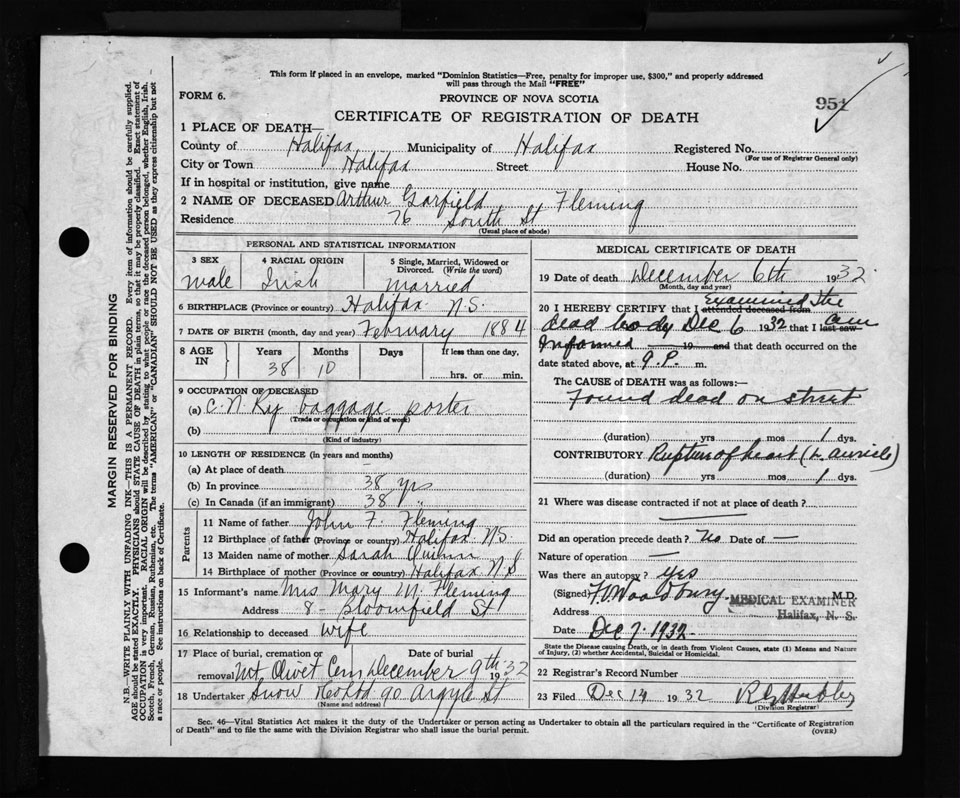 This form if placed in an envelope, marked "Dominion Statistics—Free, penalty for improper use, $300," and properly addressed
will pass through the Mail "FREE"
FORM 6.
PROVINCE OF NOVA SCOTIA
951
CERTIFICATE OF REGISTRATION OF DEATH
1 PLACE OF DEATH—
County of Halifax Municipality of Halifax Registered No.
(For use of Registrar General only)
City or Town Halifax Street House No.
If in hospital or institution, give name
2 NAME OF DECEASED Arthur Garfield Fleming
Residence 76 South St
(Usual place of abode)
PERSONAL AND STATISTICAL INFORMATION
3 SEX 4 RACIAL ORIGIN 5 Single, Married, Widowed or
Divorced. (Write the word)
male Irish Married
6 BIRTHPLACE (Province or country) Halifax N.S.
7 DATE OF BIRTH (month, day and year) February 1884
8 AGE IN Years Months Days If less than one day.
38 10 hrs. or min.
9 OCCUPATION OF DECEASED
(a) C.N.Ry baggage porter
(Trade or occupation or kind of work)
(b)
(Kind of industry)
10 LENGTH OF RESIDENCE (in years and months)
(a) At place of death
(b) In province 38 yrs
(c) In Canada (if an immigrant) 38
Parents
11 Name of father John F. Fleming
12 Birthplace of father (Province or country) Halifax N.S.
13 Maiden name of mother Sarah Quinn
14 Birthplace of mother (Province or country) Halifax N.S
15 Informant's name Mrs Mary M. Fleming
Address 8 - Bloomfield St
16 Relationship to deceased wife
17 Place of burial, cremation or Date of burial
removal Mt Olivet Cem December 9th 1932
18 Undertaker Snow & Co Ltd 90 Argyle St
(Name and address)
MEDICAL CERTIFICATE OF DEATH
19 Date of death December 6th 1932.
(Month, day and year)
20 I HEREBY CERTIFY that I attended deceased from Examined the
dead body Dec 6 1932 that I last saw am
Informed 19 and that death occurred on the
date stated above, at 9 P. m.
The CAUSE OF DEATH was as follows:—
Found dead on street
(duration) yrs mos 1 dys.
CONTRIBUTORY Rupture of heart (L. auricle)
(duration) yrs mos 1 dys.
21 Where was disease contracted if not at place of death?
Did an operation precede death? No Date of —
Nature of operation —
Was there an autopsy? Yes
(Signed) F.V. Woodbury M.D.
MEDICAL EXAMINER
Address Halifax, N. S.
Date Dec 7. 1932.
State the Disease causing Death, or in death from Violent Causes, state (1) Means and Nature
of Injury, (2) whether Accidental, Suicidal or Homicidal.
22 Registrar's Record No.
23 Filed Dec 14 1932
(Division Registrar)
Sec. 46—Vital Statistics Act makes it the duty of the Undertaker or person acting as Undertaker to obtain all the particulars required in the "Certificate of Registration
of Death" and to file the same with the Division Registrar who shall issue the burial permit.
(OVER)
MARGIN RESERVED FOR BINDING
N.B.—WRITE PLAINLY WITH UNFADING INK—THIS IS A PERMANENT RECORD. Every item of information should be carefully supplied.
AGE should be stated EXACTLY. PHYSICIANS should STATE CAUSE OF DEATH in plain terms, so that it may be properly classified. Exact statement of
OCCUPATION is very important. RACIAL ORIGIN will be described by stating to what people or race the deceased person belonged, whether English, Irish,
Scotch, French, German, Russian, Ruthenian, etc. The terms "AMERICAN" or "CANADIAN" SHOULD NOT BE USED as they express citizenship but not
a race or people. See instructions on back of Certificate.